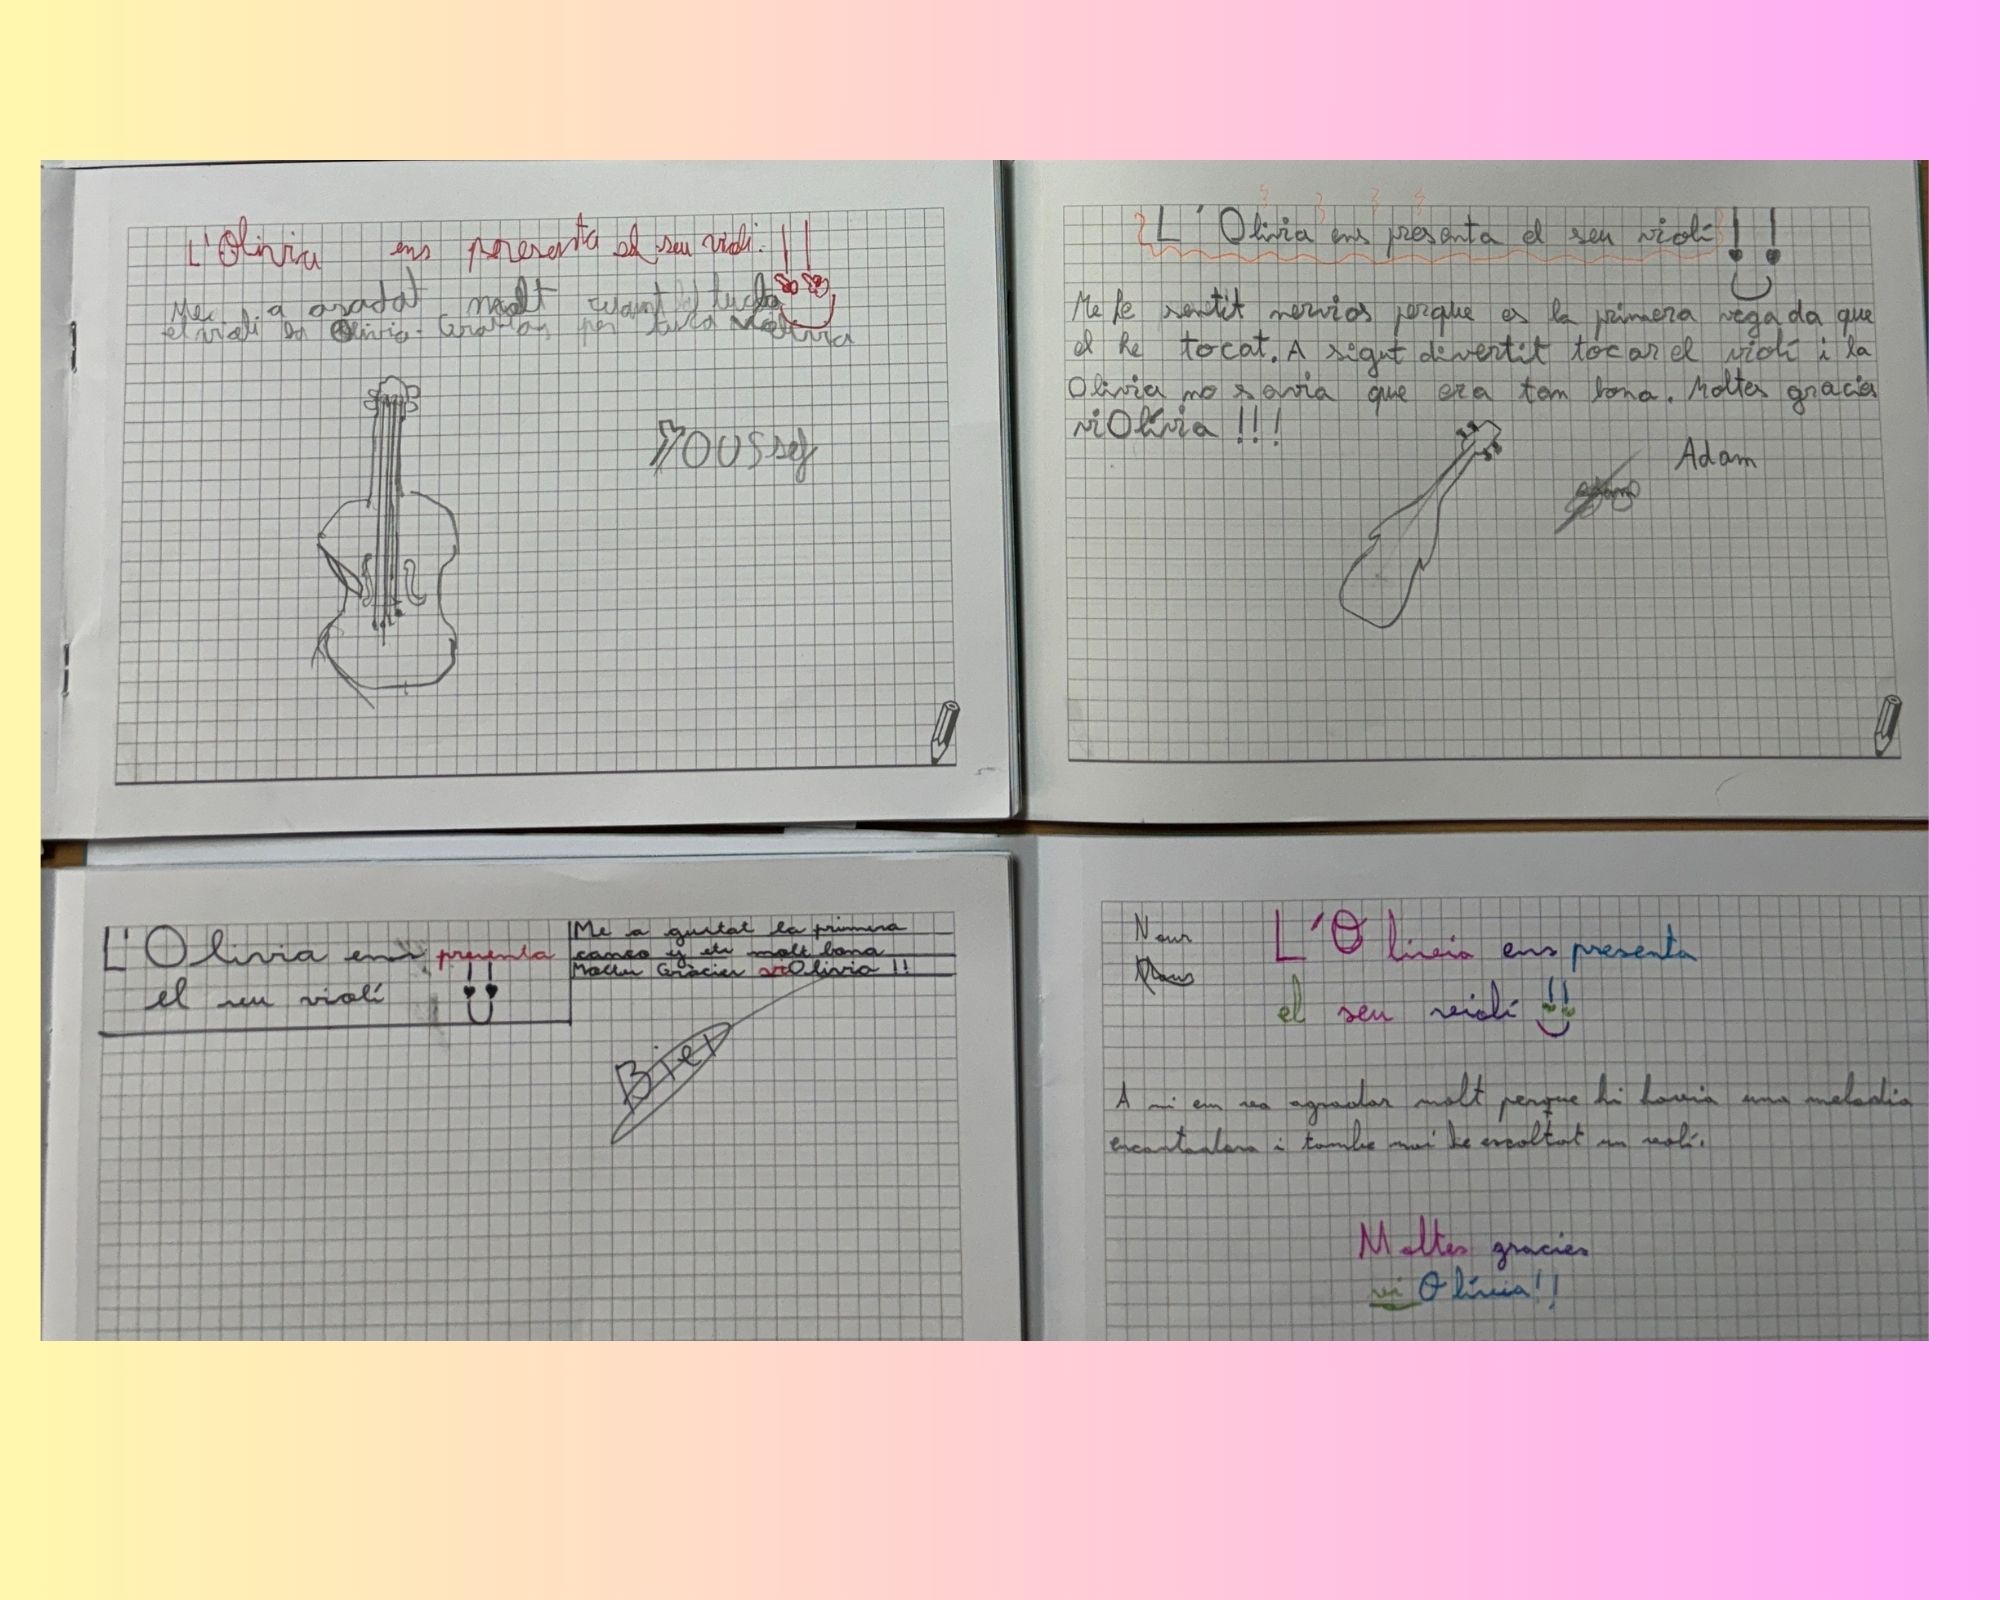 L'Olivia ens peresenta el seu violi.!!
Me a agradat molt cuant tucba
el violi la Olivia. Gracias per tucá violivia
Youssef
L'Olivia ens presenta el seu violí!!
Me he sentit nervios perque es la primera vegada que
el he tocat. A sigut divertit tocar el violí i la
Olivia no savia que era tan bona. Moltes gracies
viOlívia !!!
Adam
L'Olivia ens presenta
el seu violí !!
Me a gustat la primera
canco y ets molt bona
Moltes Gràcies viOlivia !!
Biel
Nour
L'Olivia ens presenta
el seu violí !!
A mi em va agradar molt perque hi havia una melodia
encantadora i tambe mai he escoltat un violí.
Moltes gracies
viOlívia!!